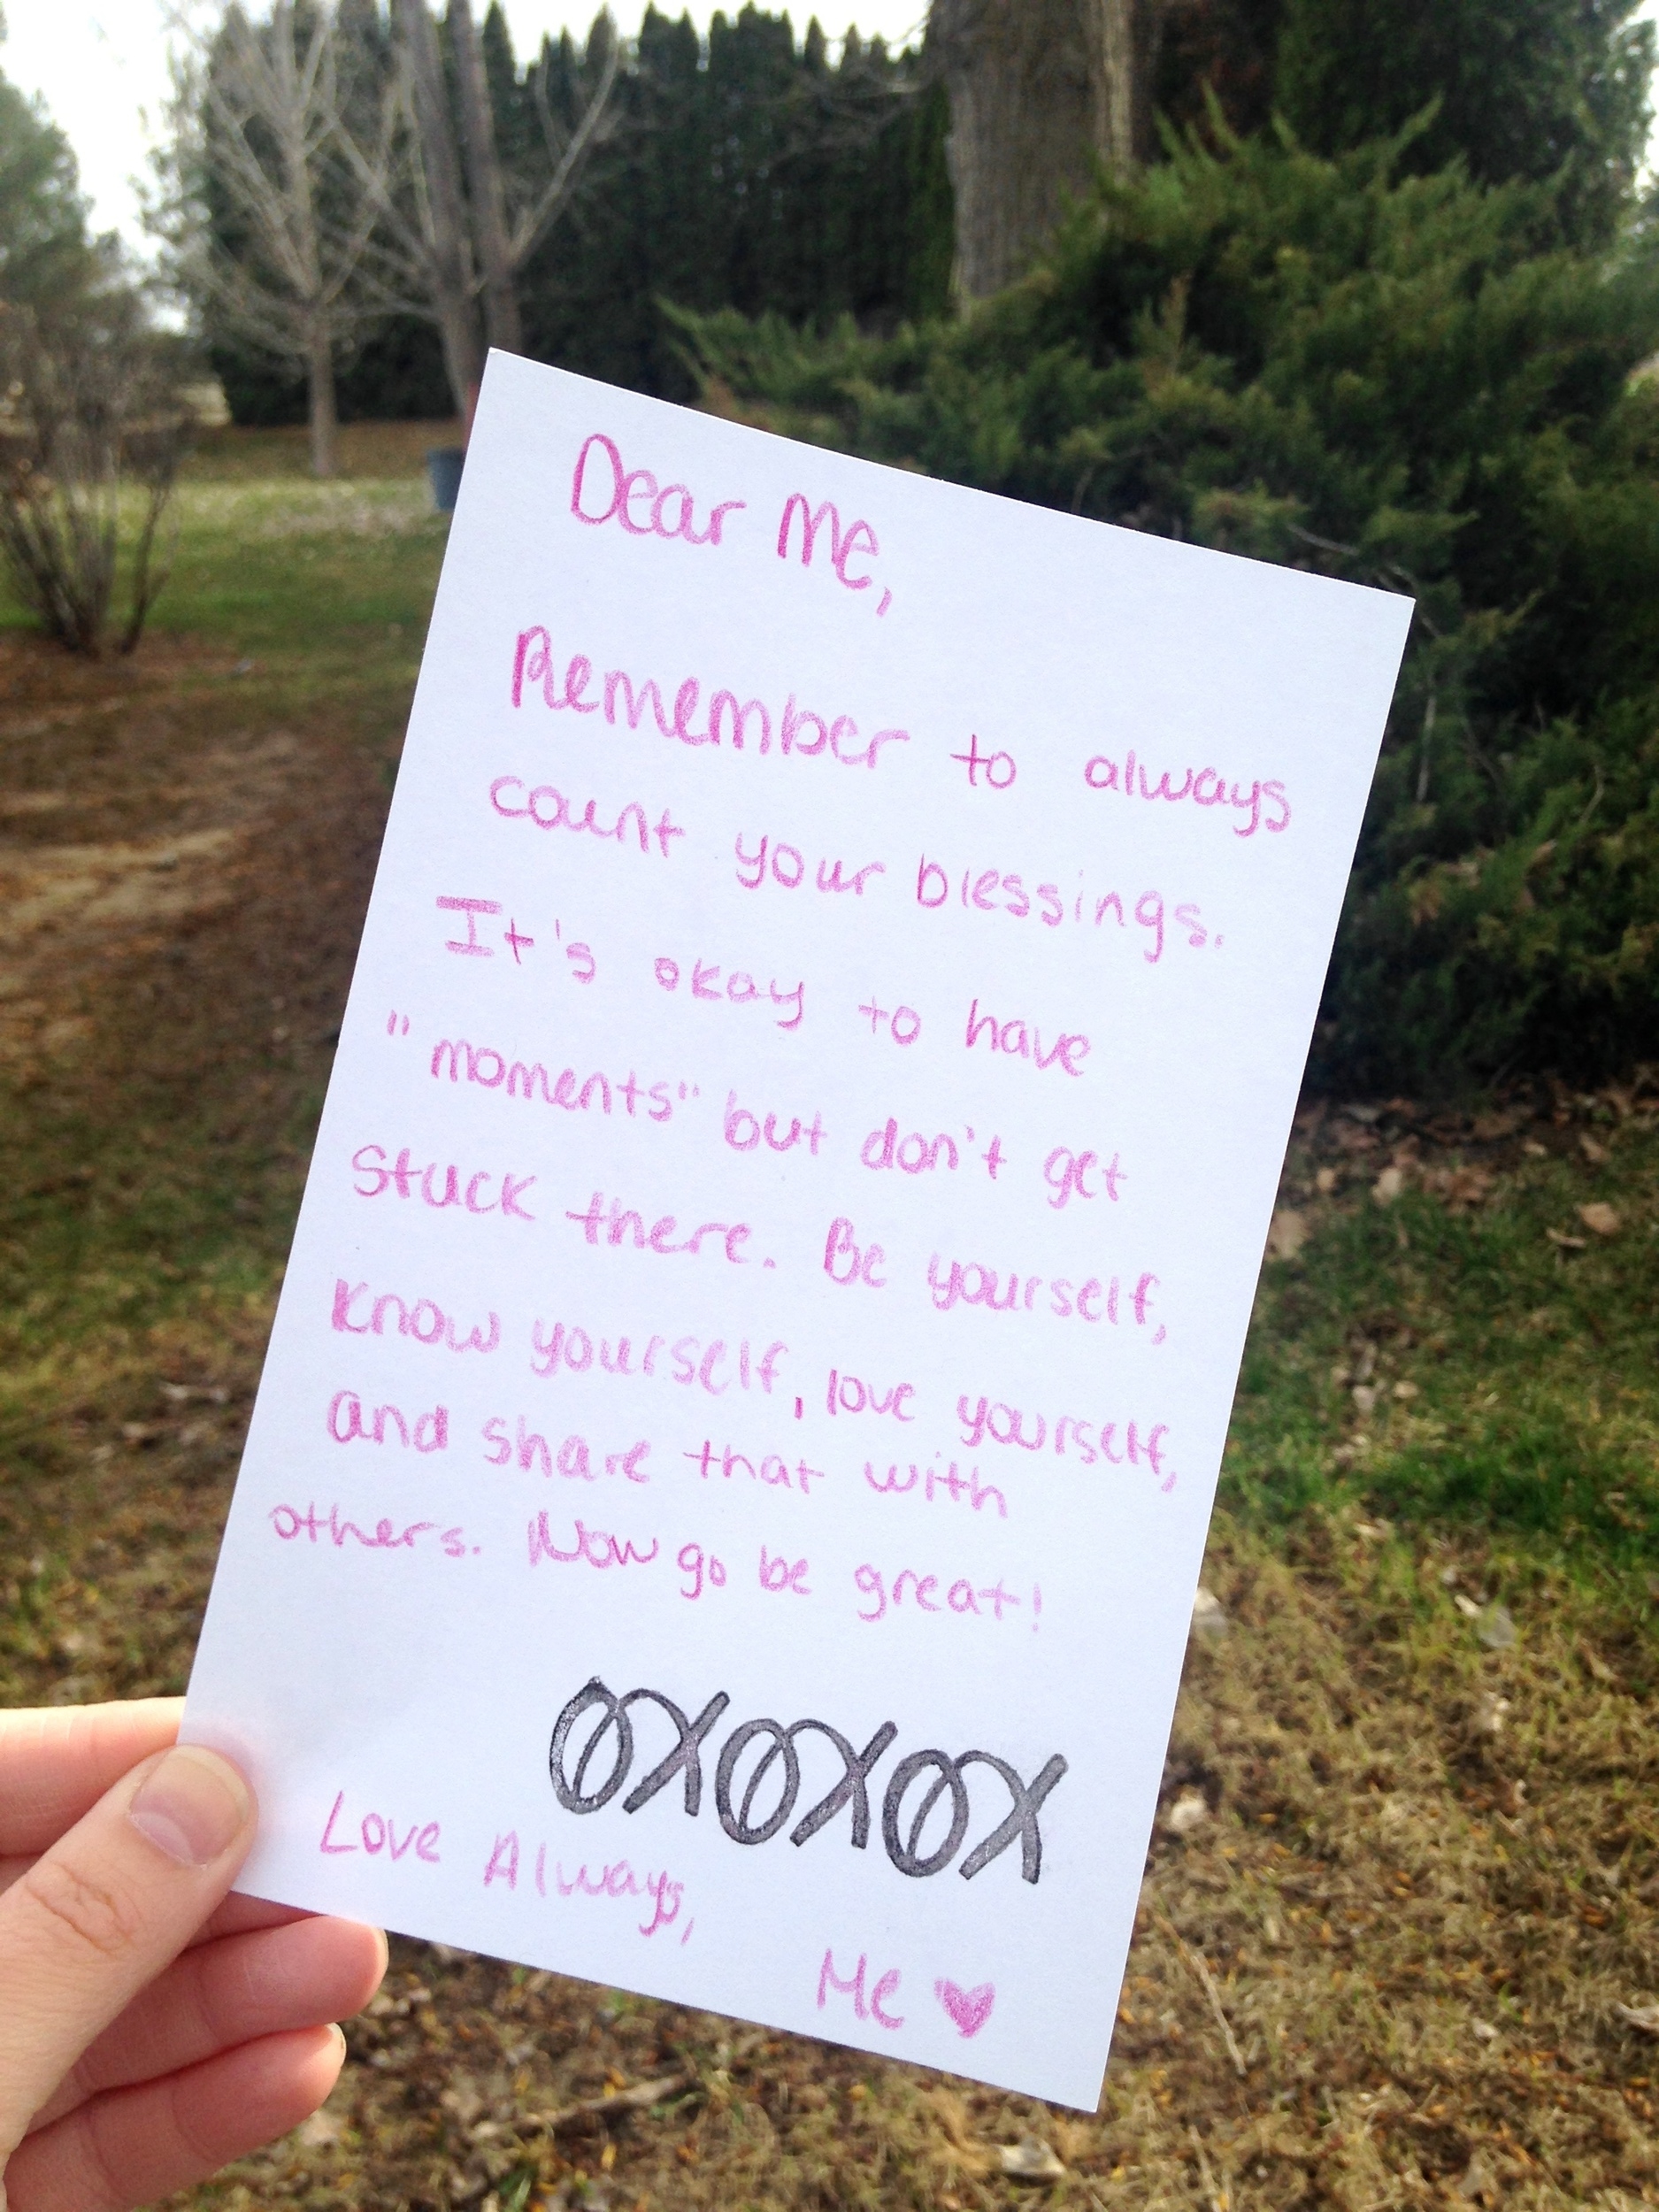 Dear Me,
Remember to always
count your blessings.
It's okay to have
"moments" but don't get
stuck there. Be yourself,
know yourself, love yourself,
and share that with
others. Now go be great!
OXOXOX
Love Always,
Me ♥